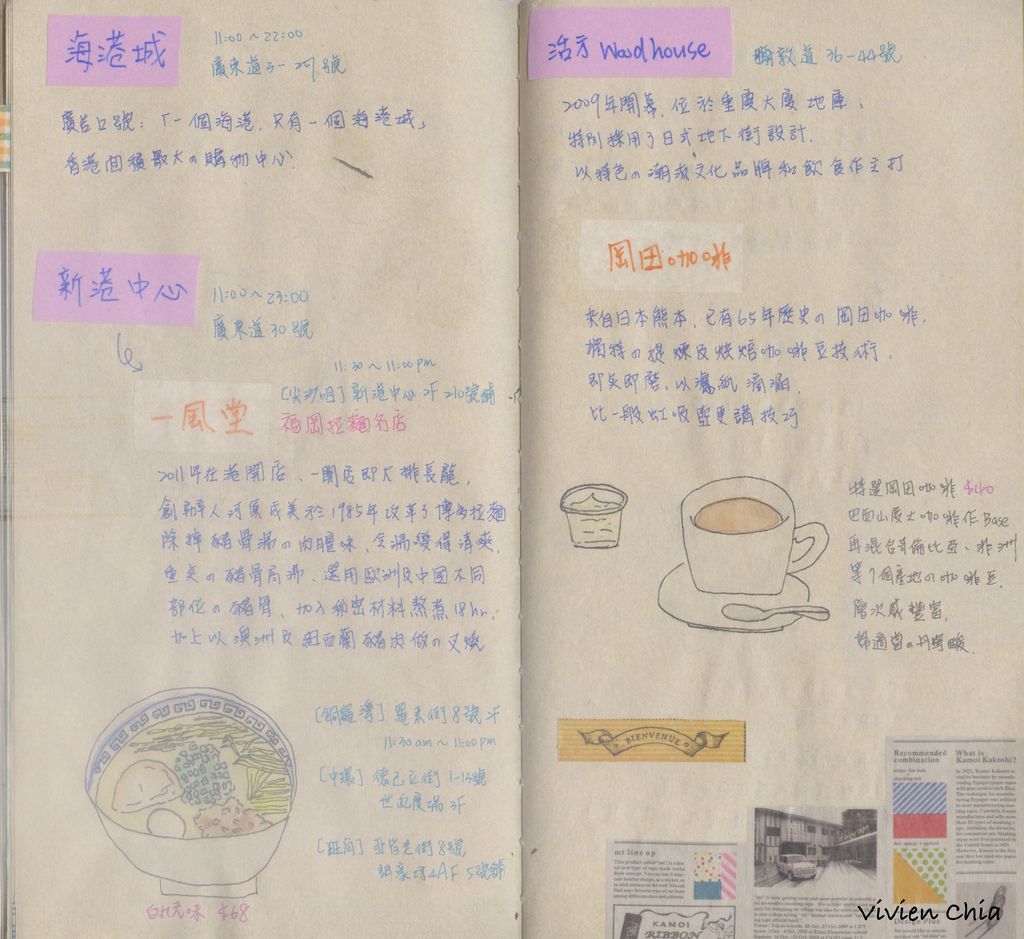 海港城
11:00～22:00
廣東道3-27號
廣告口號：「一個香港，只有一個海港城」
香港面積最大の購物中心
新港中心
11:00～23:00
廣東道30號
11:30～11:00pm
[尖沙咀] 新港中心 2F 210號舖
一風堂
福岡拉麵名店
2011年在港開店，一開店即大排長龍，
創辦人河原成美於1985年改革了博多拉麵
除掉豬骨湯の肉羶味，令湯變得清爽，
豬骨湯，選用歐洲及中國不同
部位の豬骨，加入秘密材料熬煮18hr，
加上以澳洲及紐西蘭豬肉做の叉燒
[銅鑼灣] 羅素街8號2F
11:30am～11:00pm
[中環] 德己立街 1-13號
世紀廣場 3F
[旺角] 亞皆老街8號
朗豪坊4AF 5號舖
白丸元味 $68
活方 Woodhouse
彌敦道 36-44號
2009年開幕，位於重慶大廈地庫，
特別採用了日式地下街設計，
以特色の潮流文化品牌和飲食作主打
岡田咖啡
來自日本熊本，已有65年歷史の岡田咖啡，
獨特の提煉及烘焙咖啡豆技術，
即點即磨，以濾紙滴漏，
比一般虹吸壺更講技巧
特選岡田咖啡 $40
巴西山度士咖啡作Base
再混合哥倫比亞、非洲
等7個產地の咖啡豆，
層次感豐富，
帶適當の丹寧酸
BIENVENUE
mt line up
KAMOI
RIBBON
Recommended
combination
What is
Kamoi Kakoshi?
Vivien Chia